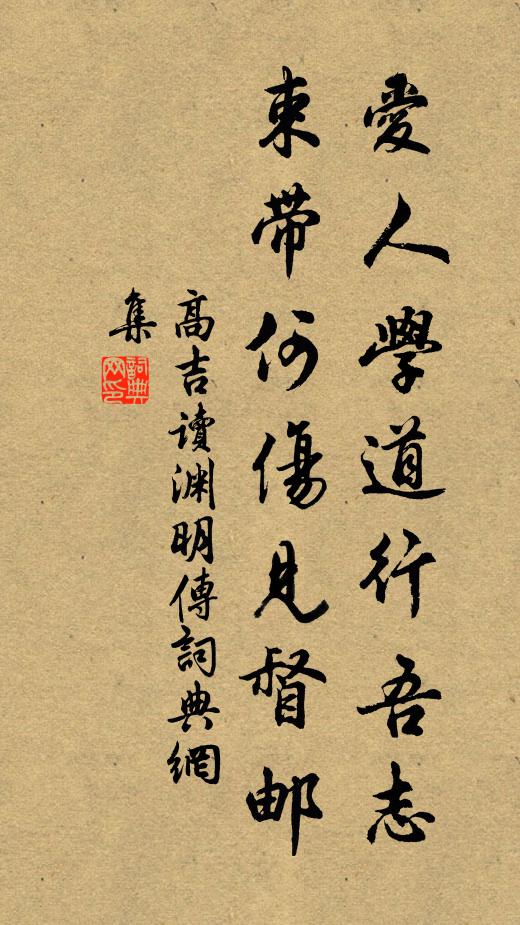 愛人學道行吾志
束帶何傷見督邮
高吉讀渊明傳詞典網
集
詞典网印